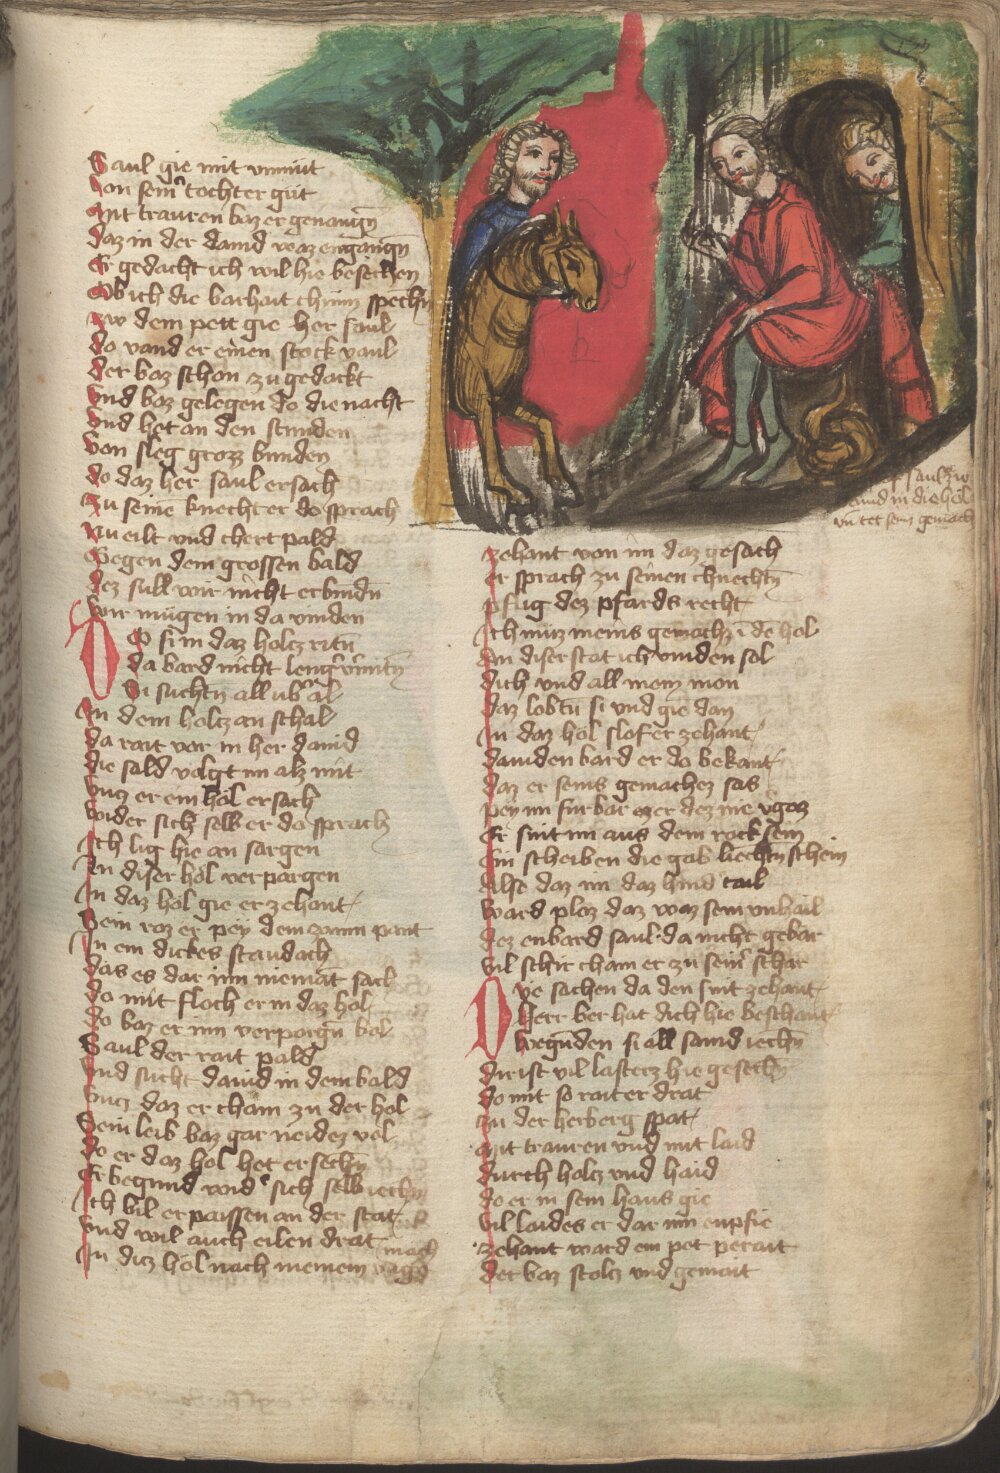 Saul gie mit vnmut
Von seinr tochter gut
Mit trauren baz er genangn
daz in der dauid waz engangn
Er gedacht ich wil hie besechen
Ob ich die barhait chunn spechn
Zw dem pett gie her saul
do vand er einen stock vaul
der baz schon zu gedackt
vnd baz gelegen do die nacht
vnd het an den stunden
von sleg grozz bunden
do daz her saul ersach
Zu seine knechten er do sprach
Nu eilt vnd chert pald
Gegen dem grossen bald
dez sull wir nicht erbindn
wir mügen in da vinden
Do si in daz holcz ritn
da bard nicht lengr vermitn
Si suchtn all vbral
In dem holcz an schal
da rait vor in her dauid
die sald volgt im alz mit
vncz er ein hol ersach
wider sich selb er do sprach
Ich lig hie an sargen
In diser hol verpargen
In daz hol gie er zehant
Sein roz er pey dem zaum pant
In ein dickes staudach
das es dar inn niemāt sach
do mit floch er in daz hol
do baz er inn verpargn bol
Saul der rait pald
vnd sucht dauid in dem bald
vncz daz er cham zu der hol
Sein leib baz gar neidez vol
do er daz hol het ersechn
Er begund wider sich selb iechn
Ich bil erpaissen an der stat
vnd wil auch eilen drat
In dicz hol nach meinem gmach
saul zw
dauid in die höl
vn tet sein gemach
zehant von im daz gesach
er sprach zu seinen chnechtn
pflig dez pfards recht
Ich muz meins gemachz ī dē hol
An diser stat ich vinden sol
dich vnd all mein man
daz lobtn si vnd gie dan
In daz hol slof er zehant
dauiden bard er do bekant
daz er seins gemachez sas
pey im furbar er dez nie vgaz
Er snit im aus dem rock sein
Ein scheiben die gab liechtn schein
Also daz im daz hind tail
ward ploz daz waz sein vnhail
dez enbard saul da nicht gebar
vil schir cham er zu seinr schar
Die sachen da den snit zehant
Herr ber hat dich hie beschant
begunden si all samd iechn
dir ist vil lasterz hie geschechn
do mit so rait er drat
zu der herberg spat
Mit trauren vnd mit laid
durch holcz vnd haid
do er in sein haus gie
vil laides er dar inn enpfie
zehant ward ein pet perait
det baz stolcz vnd gemait